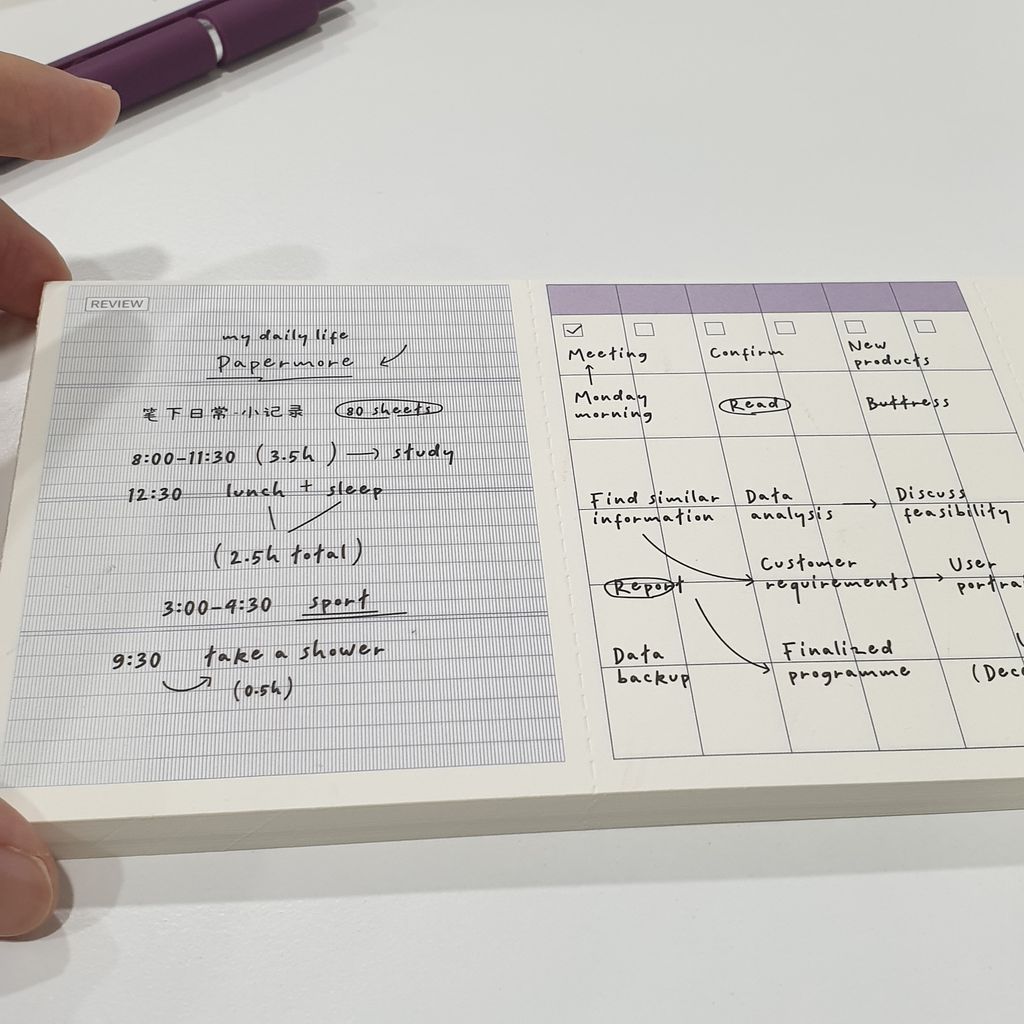 REVIEW
my daily life
Papermore
笔下日常·小记录 80 sheets
8:00-11:30 (3.5h) → study
12:30 lunch + sleep
(2.5h total)
3:00-4:30 sport
9:30 take a shower
(0.5h)
Meeting
Monday
morning
Confirm
Read
New
products
Buttress
Find similar
information
Data
analysis →
Discuss
feasibility
Report
Customer
requirements →
User
Data
backup
Finalized
programme